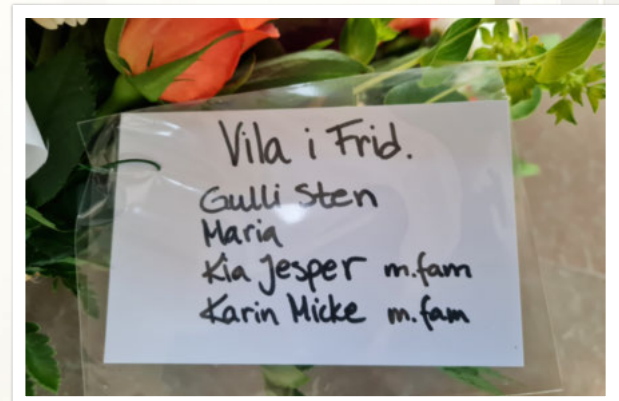 Vila i Frid.
Gulli Sten
Maria
Kia Jesper m.fam
Karin Micke m.fam